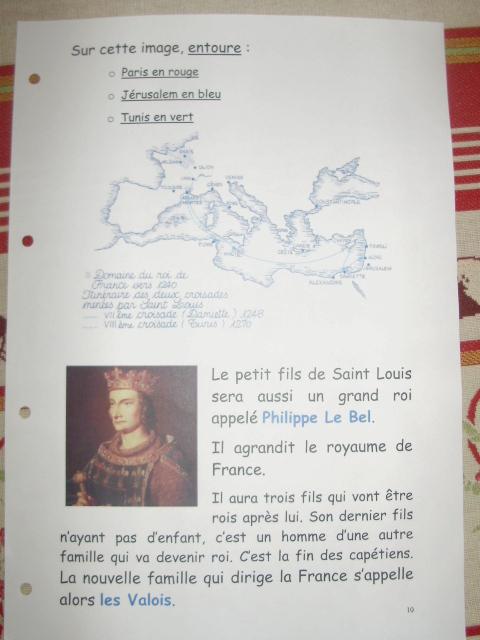 Sur cette image, entoure :
o Paris en rouge
o Jérusalem en bleu
o Tunis en vert
PARIS
ORLEANS
DIJON
LYON
VENISE
GENES
CONSTANTINOPLE
TUNIS
CRETE
TRIPOLI
ACRE
JERUSALEM
DAMIETTE
ALEXANDRIE
Domaine du roi de
France vers 1240
Itinéraire des deux croisades
menées par Saint Louis
VIIème croisade (Damiette) 1248
VIIIème croisade (Tunis) 1270
Le petit fils de Saint Louis
sera aussi un grand roi
appelé Philippe Le Bel.
Il agrandit le royaume de
France.
Il aura trois fils qui vont être
rois après lui. Son dernier fils
n'ayant pas d'enfant, c'est un homme d'une autre
famille qui va devenir roi. C'est la fin des capétiens.
La nouvelle famille qui dirige la France s'appelle
alors les Valois.
10